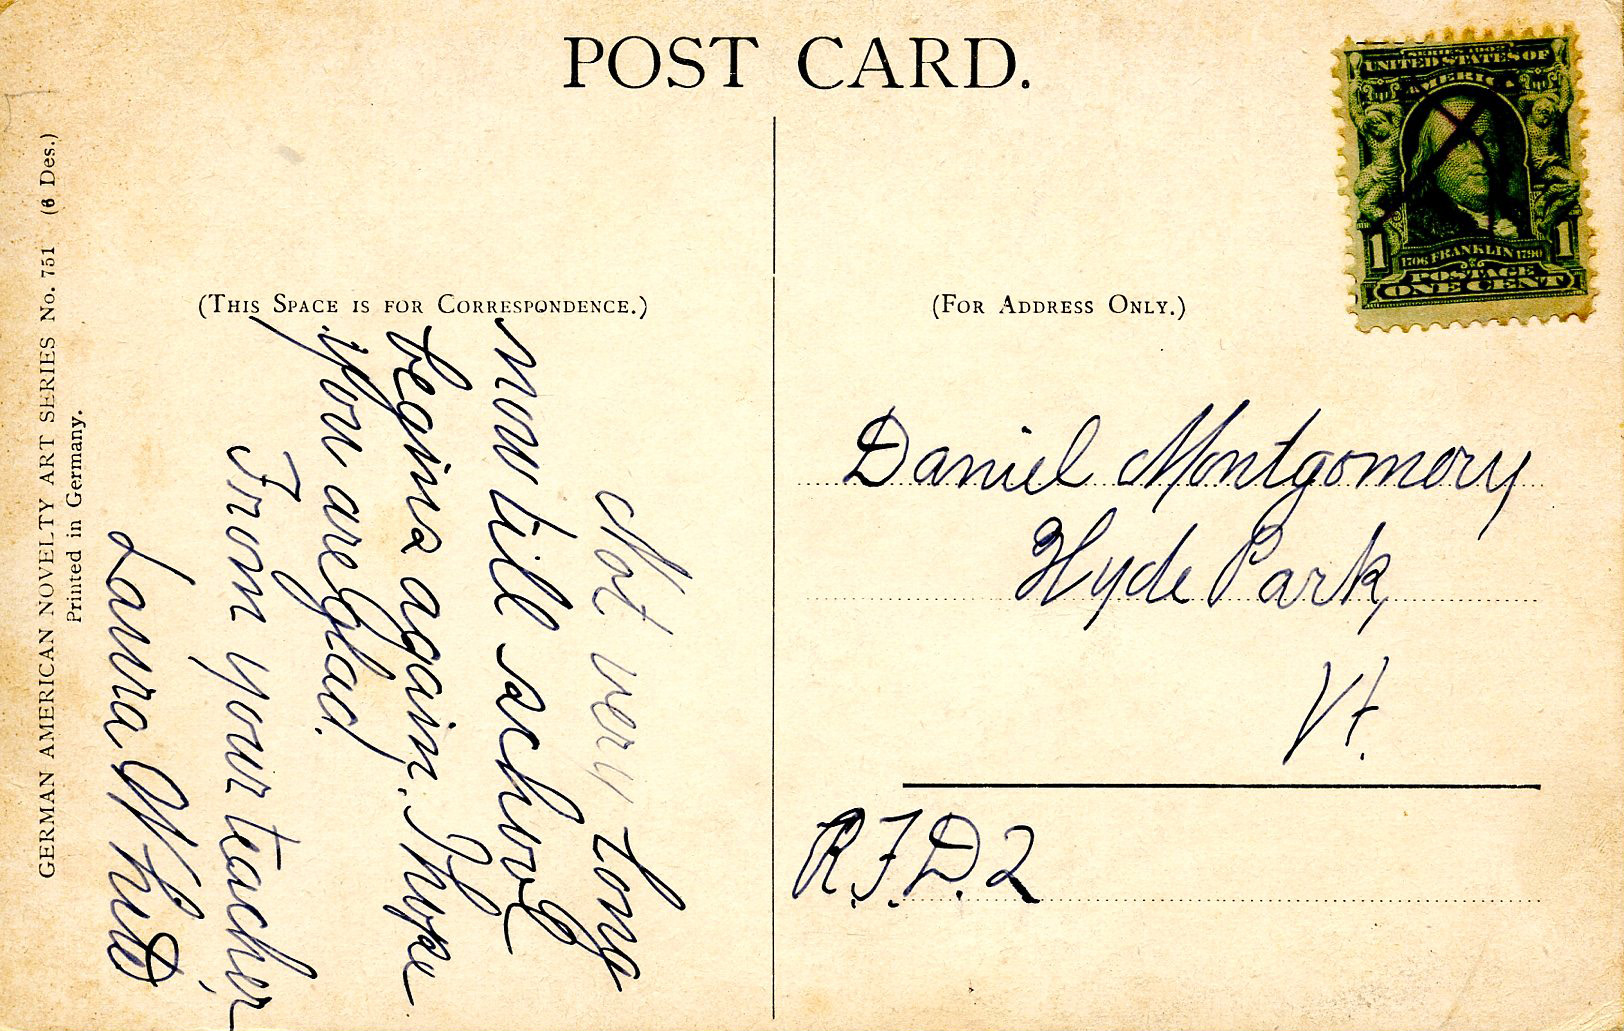 POST CARD.
SERIES 1902
UNITED STATES OF
AMERICA
1706 FRANKLIN 1790
1 1
POSTAGE
ONE CENT
GERMAN AMERICAN NOVELTY ART SERIES No. 751 (6 Des.)
Printed in Germany.
(THIS SPACE IS FOR CORRESPONDENCE.)
Not very long
now till school
begins again. I hope
you are glad.
From your teacher,
Laura White
(FOR ADDRESS ONLY.)
Daniel Montgomery
Hyde Park,
Vt.
R.F.D. 2